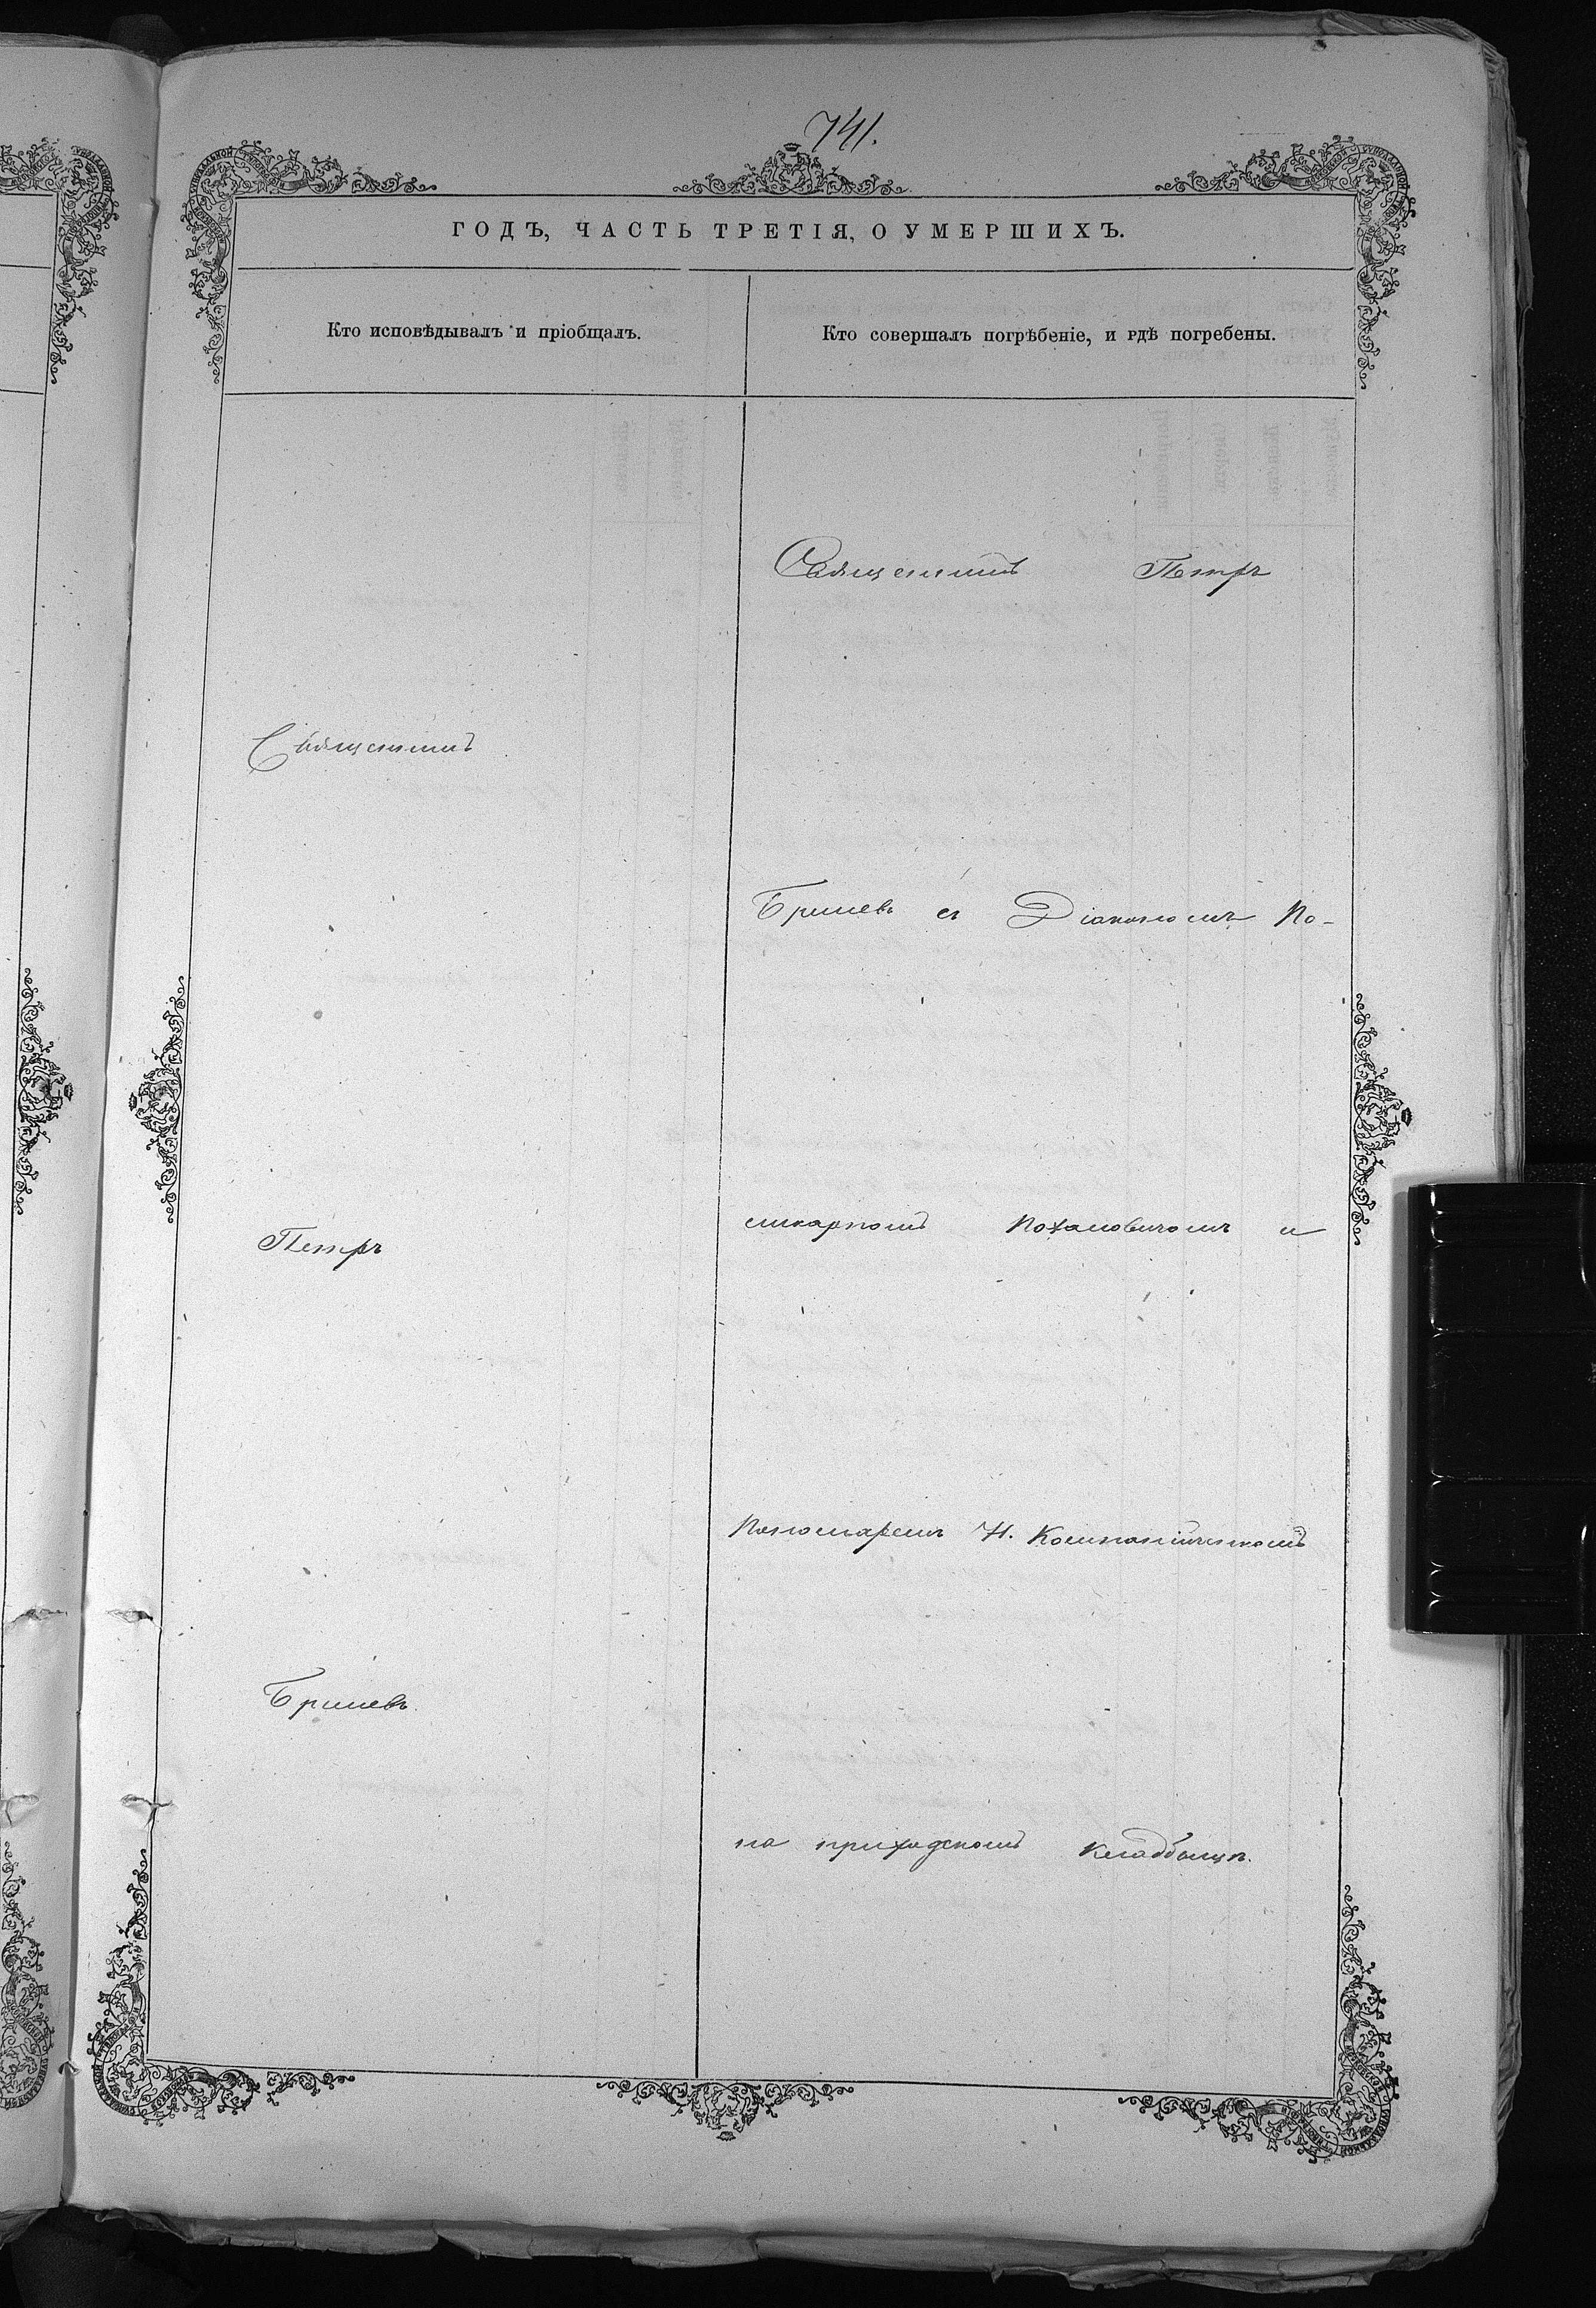 741.
ГОДЪ, ЧАСТЬ ТРЕТІЯ, О УМЕРШИХЪ.
Кто исповѣдывалъ и пріобщалъ.
Священникъ
Петръ
Бриневъ.
Кто совершалъ погрѣбеніе, и гдѣ погребены.
Священникъ Петръ
Бриневъ съ Діакономъ По-
ликарпомъ и
Пономаремъ Н.
на приходскомъ кладбищѣ.